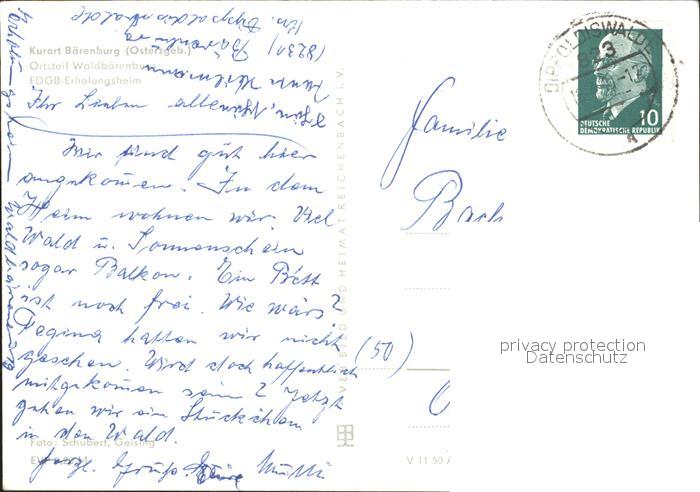 Kurort Bärenburg (Osterzgeb.)
Ortsteil Waldbärenburg
FDGB-Erholungsheim
(8231) Bärenburg
Kr. Dippoldiswalde
Ihr Lieben alle
Wir sind gut hier
angekommen. In dem
Heim wohnen wir. Viel
Wald u. Sonnenschein
sogar Balkon. Ein Bett
ist noch frei. Wie wärs?
hatten wir nicht
gesehen. Wird doch hoffentlich
mitgekommen sein? Jetzt
gehen wir ein Stückchen
in den Wald.
herzl. Grüße Mutti
Foto: Schubert, Geising
VERLAG BILD UND HEIMAT REICHENBACH i. V.
V 11 50
Familie
Bach
(50)
DIPPOLDISWALDE
823
DEUTSCHE
DEMOKRATISCHE REPUBLIK
10
privacy protection
Datenschutz